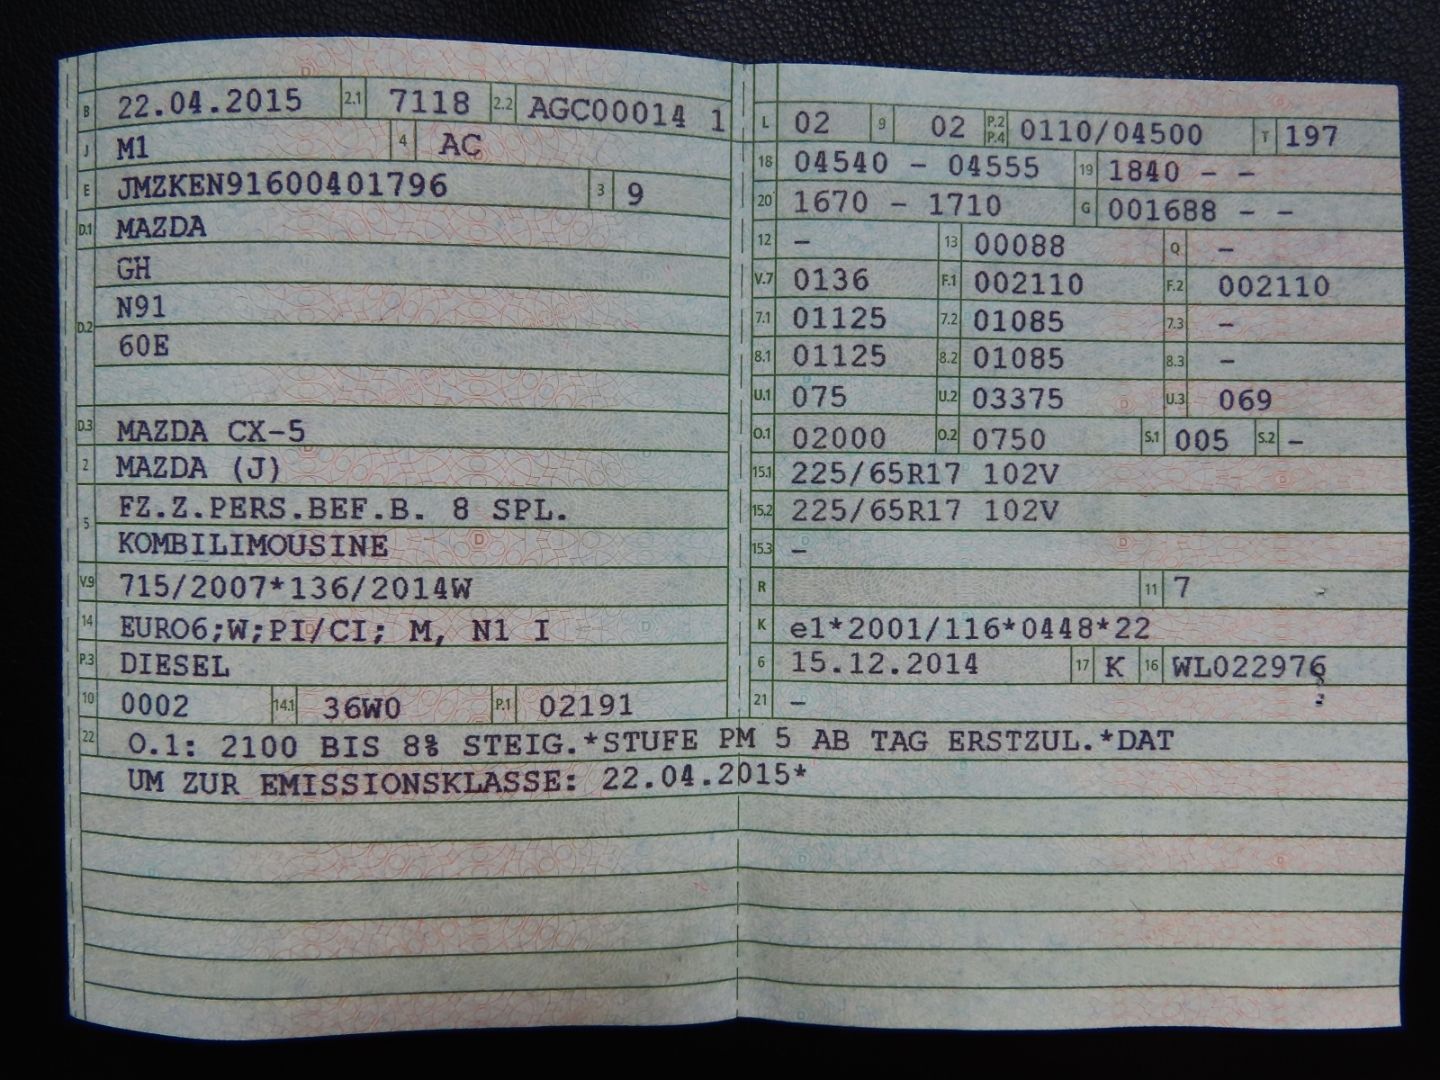 B 22.04.2015 2.1 7118 2.2 AGC00014 1
J M1 4 AC
E JMZKEN91600401796 3 9
D.1 MAZDA
GH
D.2 N91
60E
D.3 MAZDA CX-5
2 MAZDA (J)
5 FZ.Z.PERS.BEF.B. 8 SPL.
KOMBILIMOUSINE
V.9 715/2007*136/2014W
14 EURO6;W;PI/CI; M, N1 I
P.3 DIESEL
10 0002 14.1 36W0 P.1 02191
L 02 9 02 P.2 P.4 0110/04500 T 197
18 04540 - 04555 19 1840 - -
20 1670 - 1710 G 001688 - -
12 - 13 00088 Q -
V.7 0136 F.1 002110 F.2 002110
7.1 01125 7.2 01085 7.3 -
8.1 01125 8.2 01085 8.3 -
U.1 075 U.2 03375 U.3 069
O.1 02000 O.2 0750 S.1 005 S.2 -
15.1 225/65R17 102V
15.2 225/65R17 102V
15.3 -
R 11 7 -
K e1*2001/116*0448*22
6 15.12.2014 17 K 16 WL022976
21 -
22 O.1: 2100 BIS 8% STEIG.*STUFE PM 5 AB TAG ERSTZUL.*DAT
UM ZUR EMISSIONSKLASSE: 22.04.2015*